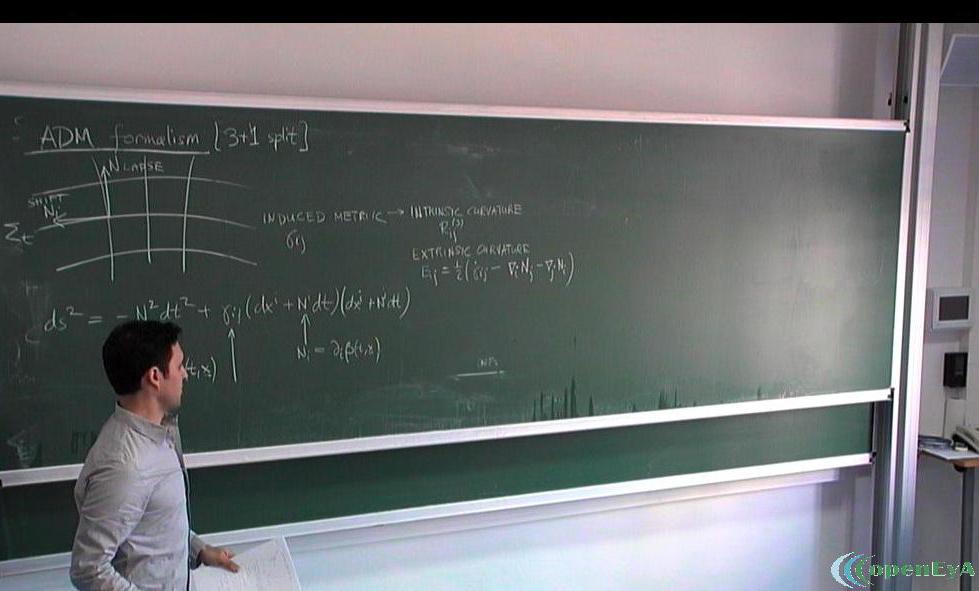 ADM formalism [3+1 split]
N LAPSE
SHIFT
Nᵢ
Σₜ
INDUCED METRIC → INTRINSIC CURVATURE
γᵢⱼ
Rᵢⱼ⁽³⁾
EXTRINSIC CURVATURE
Eᵢⱼ = ½(γ̇ᵢⱼ − ∇ᵢNⱼ − ∇ⱼNᵢ)
ds² = −N²dt² + γᵢⱼ(dxⁱ + Nⁱdt)(dxʲ + Nʲdt)
(t,x)
Nᵢ = ∂ᵢβ(t,x)
openEyA